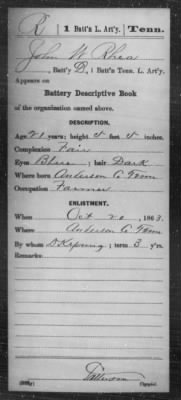 R | 1 Batt'n L. Art'y. | Tenn.
John W. Rhea
, Batt'y D, 1 Batt'n Tenn. L. Art'y.
Appears on
Battery Descriptive Book
of the organization named above.
DESCRIPTION.
Age 21 years; height 5 feet inches.
Complexion Fair
Eyes Blue ; hair Dark
Where born Anderson C Tenn
Occupation Farmer
ENLISTMENT.
When Oct 20 , 1863.
Where Anderson C Tenn
By whom ; term 3 y'rs.
Remarks:
Patterson
(339g) Copyist.